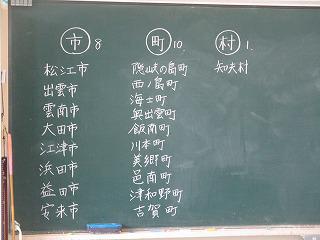 市 8
松江市
出雲市
雲南市
大田市
江津市
浜田市
益田市
安来市
町 10.
隠岐の島町
西ノ島町
海士町
奥出雲町
飯南町
川本町
美郷町
邑南町
津和野町
吉賀町
村 1.
知夫村